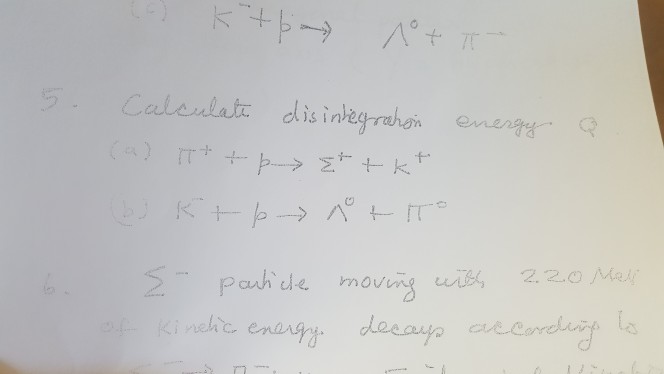 (c) K⁻ + p → Λ⁰ + π⁻
5. Calculate disintegration energy Q
(a) π⁺ + p → Σ⁺ + K⁺
(b) K⁻ + p → Λ⁰ + π⁰
6. Σ⁻ particle moving with 220 MeV
of kinetic energy decays according to